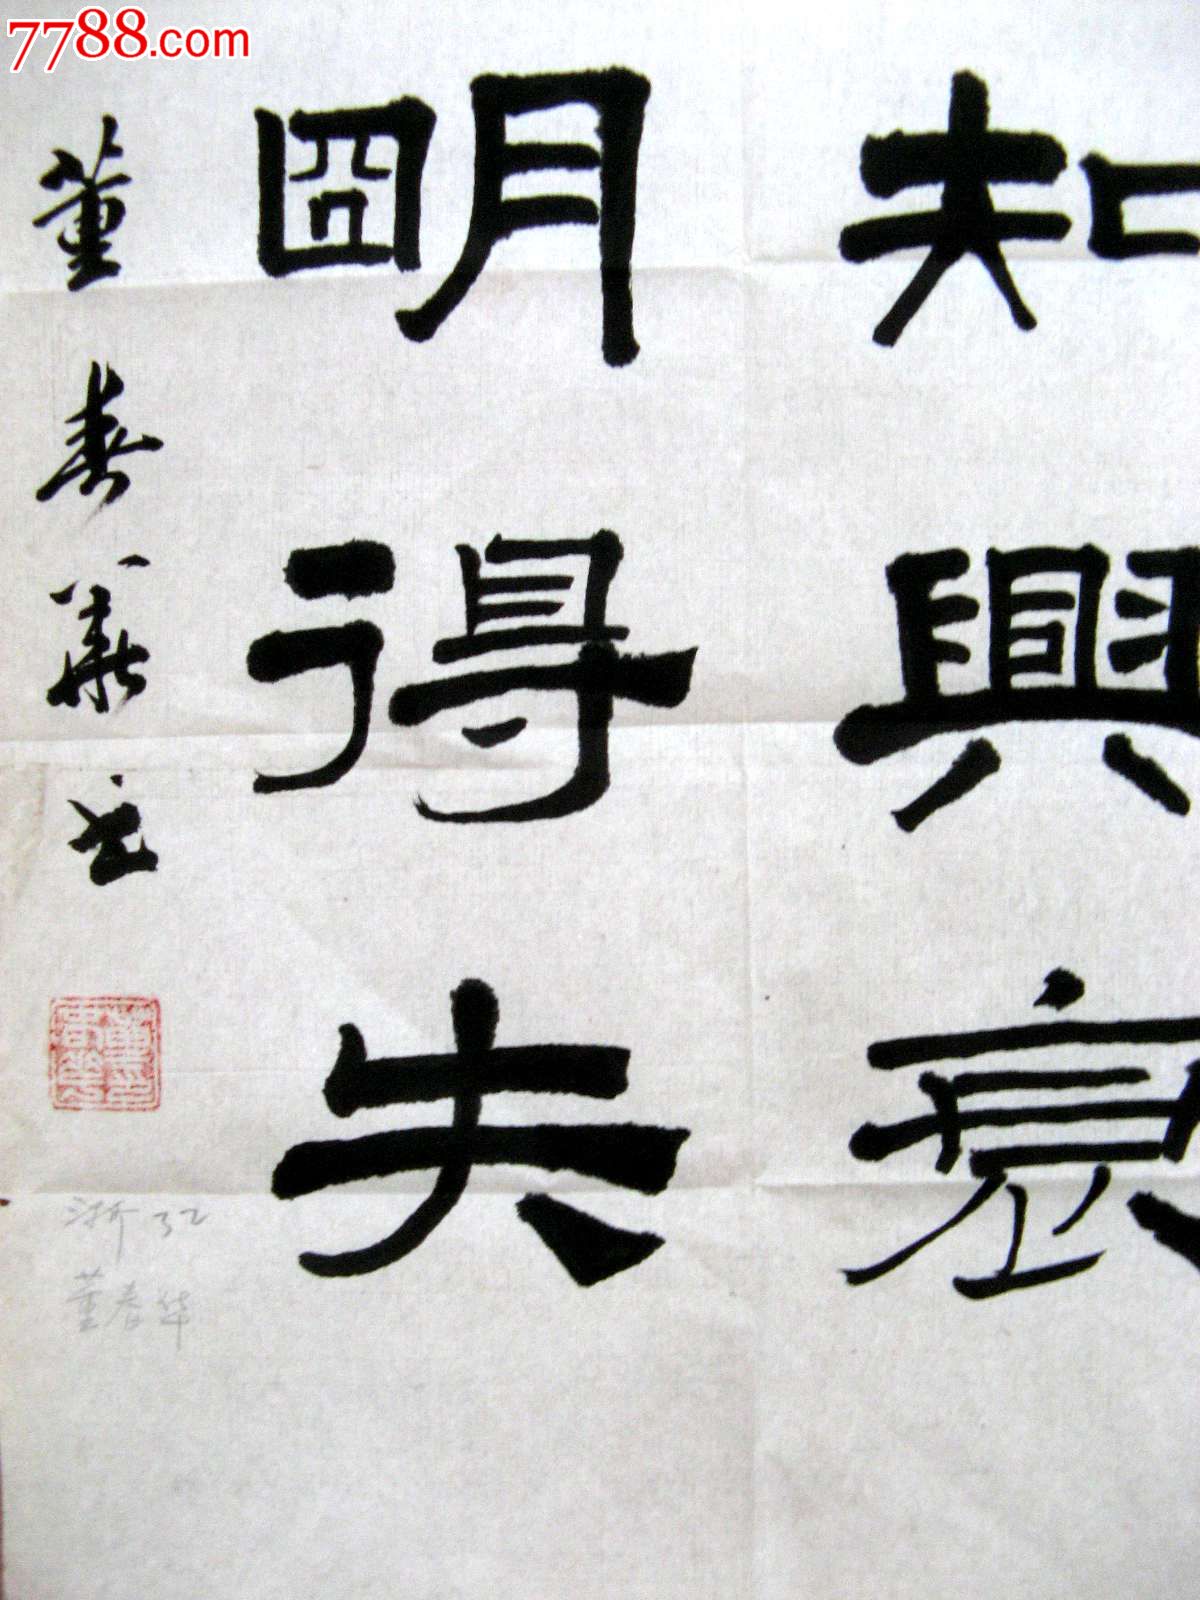 7788.com
知興衰
明得失
董春華书
浙江
董春华